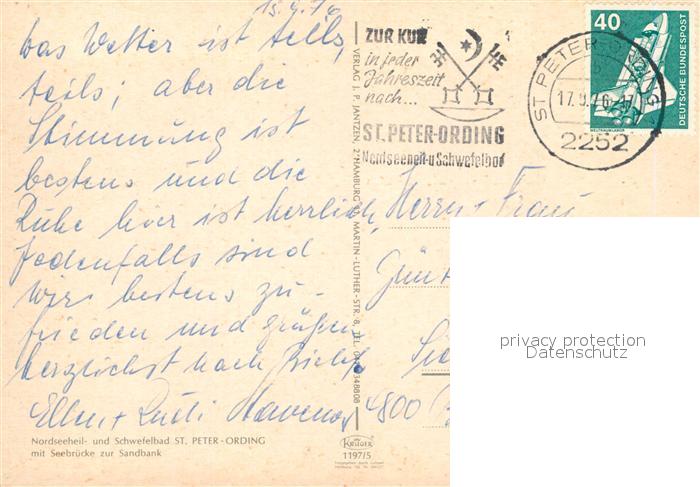 15.9.76
Das Wetter ist teils,
teils, aber die
Stimmung ist
bestens und die
Ruhe hier ist herrlich,
Jedenfalls sind
wir bestens zu-
frieden und grüßen
herzlichst nach
Ellen + Rudi
Nordseeheil- und Schwefelbad ST. PETER-ORDING
mit Seebrücke zur Sandbank
VERLAG J. P. JANTZEN, 2 HAMBURG MARTIN-LUTHER-STR. 8, TEL. 348808
KRÜGER
1197/5
ZUR KUR
in jeder
Jahreszeit
nach...
ST. PETER-ORDING
Nordseeheil-u Schwefelbad
ST PETER-ORDING
17.9.76-17
2252
40
DEUTSCHE BUNDESPOST
WELTRAUMLABOR
Herrn + Frau
Günt
4800
privacy protection
Datenschutz